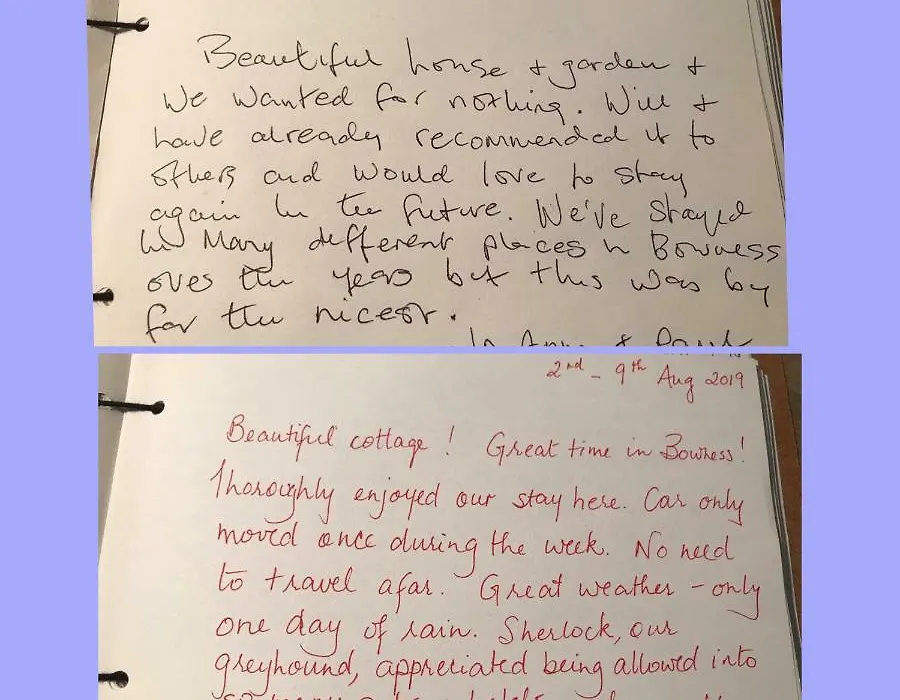 Beautiful house + garden +
We wanted for nothing. Will +
have already recommended it to
others and would love to stay
again in the future. We've stayed
in Many different places in Bowness
over the years but this was by
far the nicest.
2nd - 9th Aug 2019
Beautiful cottage! Great time in Bowness!
Thoroughly enjoyed our stay here. Car only
moved once during the week. No need
to travel afar. Great weather - only
one day of rain. Sherlock, our
greyhound, appreciated being allowed into